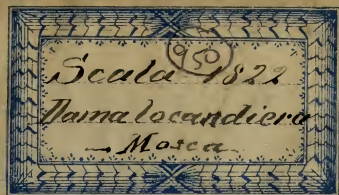 950
Scala 1822
Dama locandiera
- Mosca -